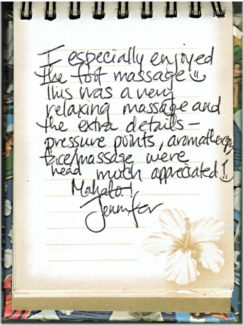 I especially enjoyed
the foot massage
This was a very
relaxing massage and
the extra details -
pressure points, aromatherapy
face/massage were
head much appreciated!
Mahalo!
Jennifer